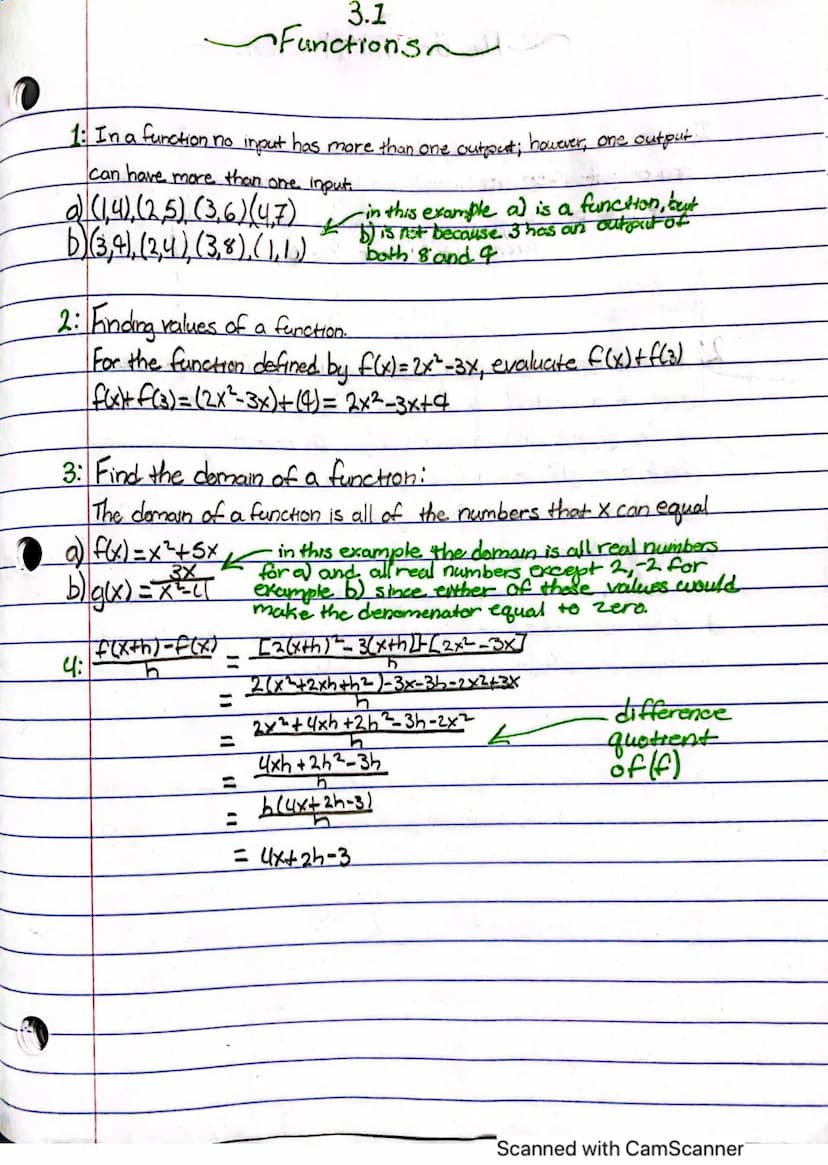 3.1
Functions
1: In a function no input has more than one output; however, one output
can have more than one input.
a) (1,4), (2,5) (3,6) (4,7)
b) (3,9), (2,4), (3,8), (1,1)
in this example a) is a function, but
b) is not because 3 has an output of
both 8 and 9
2: Finding values of a function.
For the function defined by f(x)=2x²-3x, evaluate f(x)+f(3)
f(x)+f(3)=(2x²-3x)+(9)= 2x²-3x+9
3: Find the domain of a function:
The domain of a function is all of the numbers that x can equal
a) f(x)=x²+5x
b) g(x)= 3x / x²-4
in this example the domain is all real numbers
for a) and all real numbers except 2,-2 for
example b) since either of these values would
make the denomenator equal to zero.
4: f(x+h)-f(x) / h = [2(x+h)²-3(x+h)]-[2x²-3x] / h
= 2(x²+2xh+h²)-3x-3h-2x²+3x / h
= 2x²+4xh+2h²-3h-2x² / h
difference
quotient
of (f)
= 4xh+2h²-3h / h
= h(4x+2h-3) / h
= 4x+2h-3
Scanned with CamScanner